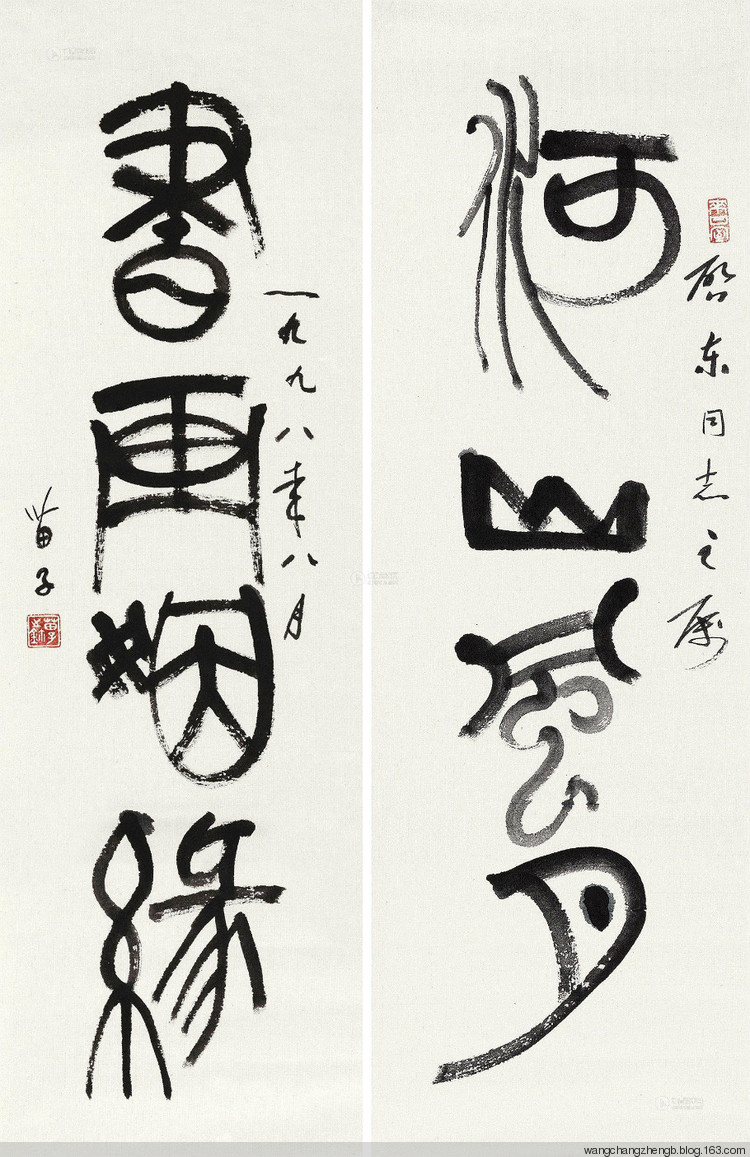 启东同志之属
河山風月
書画姻緣
一九九八年八月
苗子
wangchangzhengb.blog.163.com